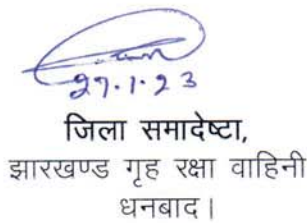 27.1.23
जिला समादेष्टा,
झारखण्ड गृह रक्षा वाहिनी
धनबाद।